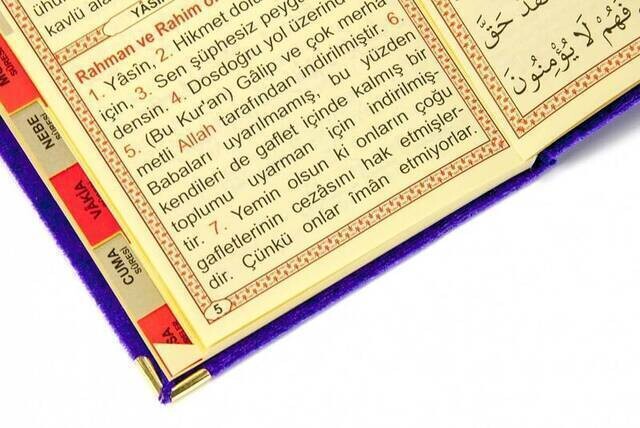 kavlü
YÂSÎN
Rahman ve Rahim
1. Yâsîn, 2. Hikmet
için, 3. Sen şüphesiz
densin. 4. Dosdoğru yol üzerinde
5. (Bu Kur'an) Gâlip ve çok merha-
metli Allah tarafından indirilmiştir. 6.
Babaları uyarılmamış, bu yüzden
kendileri de gaflet içinde kalmış bir
toplumu uyarman için indirilmiş-
tir. 7. Yemin olsun ki onların çoğu
gafletlerinin cezâsını hak etmişler-
dir. Çünkü onlar îmân etmiyorlar.
5
حَقَّ
فَهُمْ لَا يُؤْمِنُونَ
NEBE
SÛRESİ
VÂKIA
CUMA
SÛRESİ